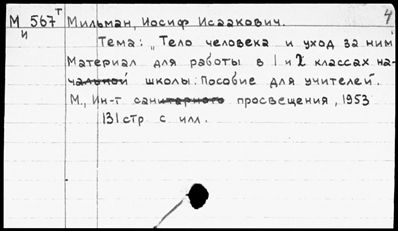 М 567 т Мильман, Иосиф Исаакович. 4
и Тема: „Тело человека и уход за ним
Материал для работы в I и X классах на-
чальной школы: Пособие для учителей".
М., Ин-т санитарного просвещения, 1953
131 стр с илл.